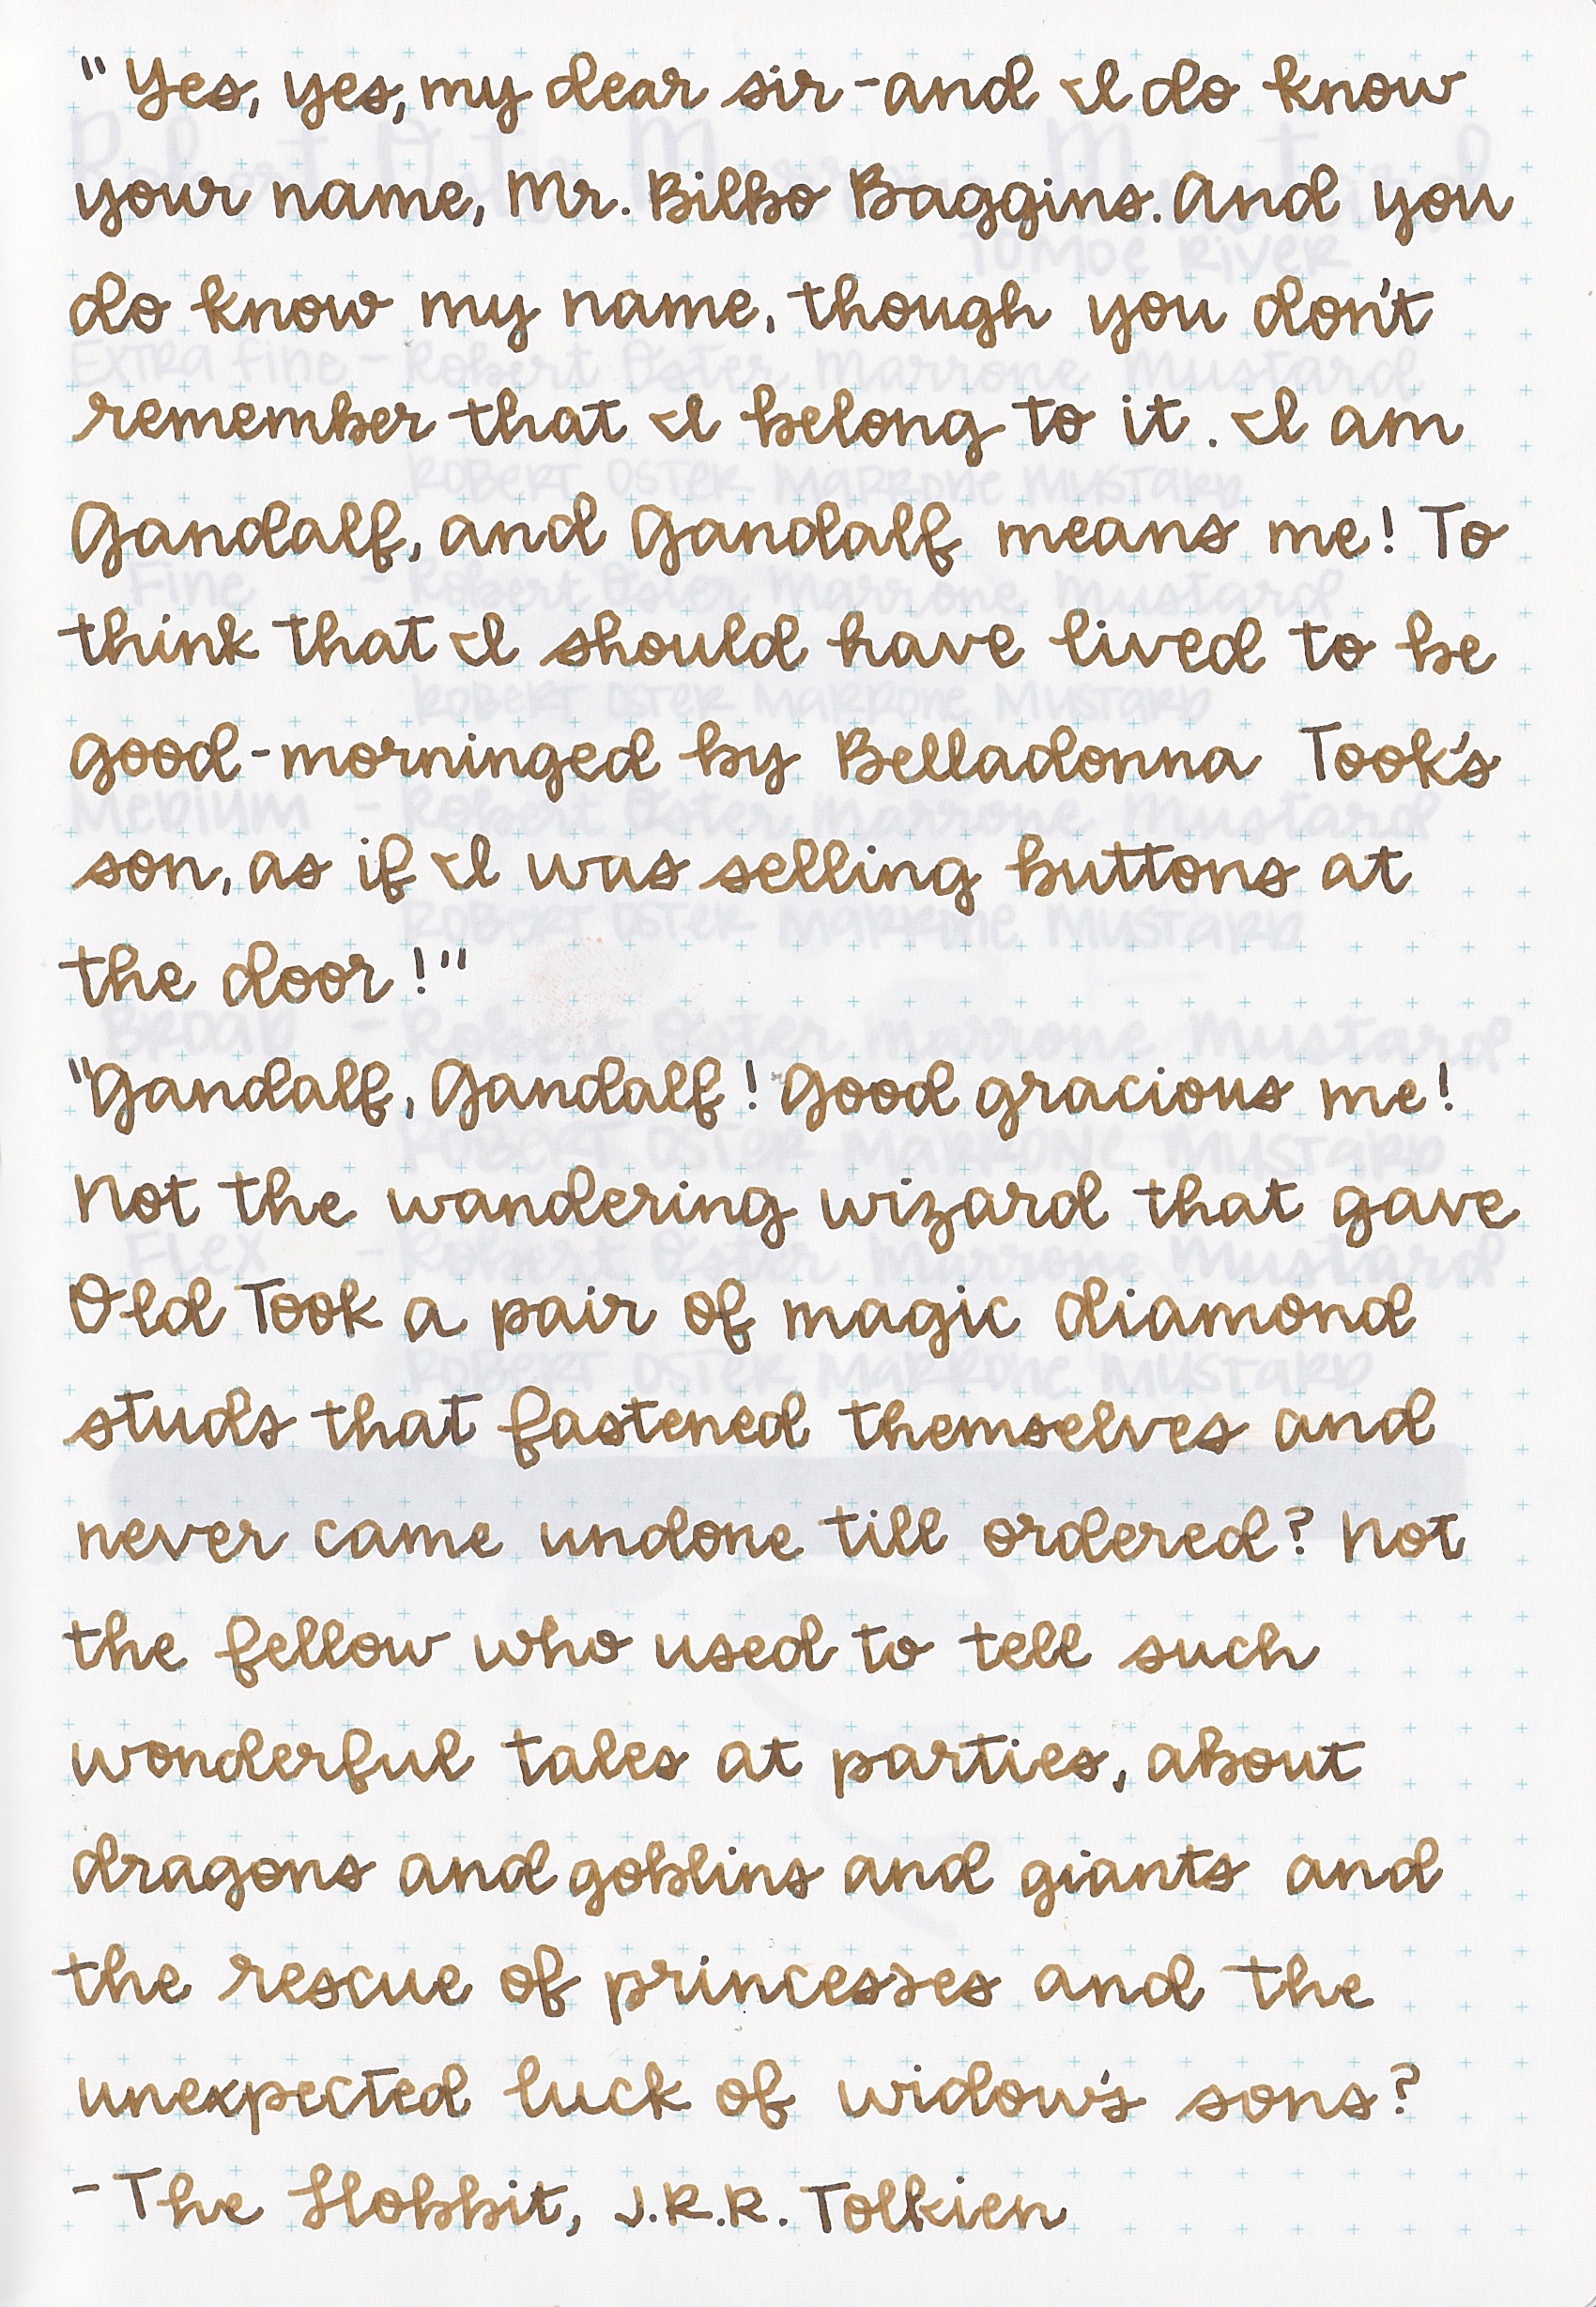 "Yes, yes, my dear sir - and I do know
your name, Mr. Bilbo Baggins. And you
do know my name, though you don't
remember that I belong to it. I am
Gandalf, and Gandalf means me! To
think that I should have lived to be
good-morninged by Belladonna Took's
son, as if I was selling buttons at
the door!"
"Gandalf, Gandalf! Good gracious me!
Not the wandering wizard that gave
Old Took a pair of magic diamond
studs that fastened themselves and
never came undone till ordered? Not
the fellow who used to tell such
wonderful tales at parties, about
dragons and goblins and giants and
the rescue of princesses and the
unexpected luck of widow's sons?
- The Hobbit, J.R.R. Tolkien
Robert Oster Marrone Mustard
Tomoe River
Extra Fine - Robert Oster Marrone Mustard
Robert Oster Marrone Mustard
Fine - Robert Oster Marrone Mustard
Robert Oster Marrone Mustard
Medium - Robert Oster Marrone Mustard
Robert Oster Marrone Mustard
Broad - Robert Oster Marrone Mustard
Robert Oster Marrone Mustard
Flex - Robert Oster Marrone Mustard
Robert Oster Marrone Mustard